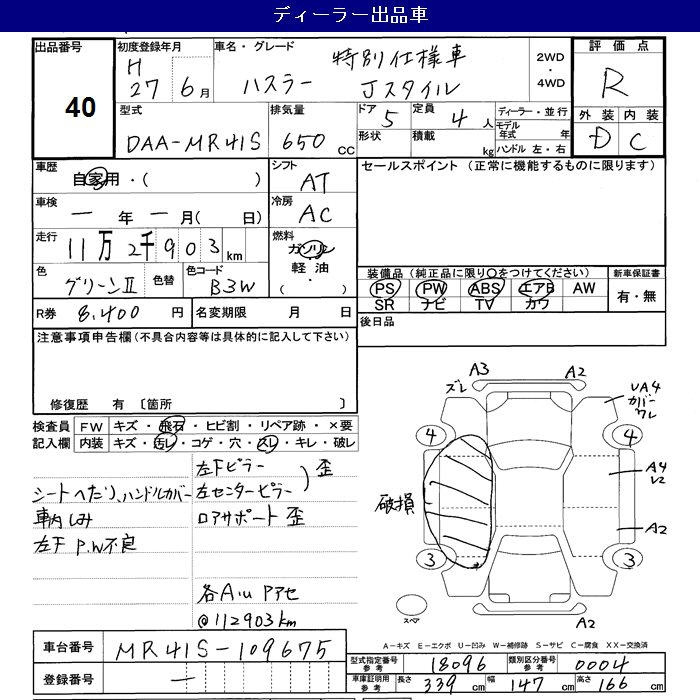 ディーラー出品車
出品番号 40
初度登録年月 H 27年 6月
車名・グレード 特別仕様車 ハスラー Jスタイル
2WD・4WD
評価点 R
外装 内装
D C
型式 DAA-MR41S
排気量 650 CC
ドア 5
定員 4 人
形状
積載 kg
ディーラー・並行
モデル年式 年
ハンドル 左・右
車歴 自家用・( )
シフト AT
セールスポイント (正常に機能するものに限ります)
車検 一 年 一 月( 日)
冷房 AC
走行 11万2千903 km
燃料 ガソリン
軽油
・( )
色 グリーンⅡ 色替
色コード B3W
装備品 (純正品に限り○をつけてください)
新車保証書
PS PW ABS エアB AW
SR ナビ TV カワ
有・無
R券 8,400 円
名変期限 月 日
後日品
注意事項申告欄 (不具合内容等は具体的に記入して下さい)
修復歴 有 〔箇所 〕
検査員 FW キズ・飛石・ヒビ割・リペア跡・×要
記入欄 内装 キズ・汚レ・コゲ・穴・スレ・キレ・破レ
シートへたり、ハンドルカバー
車内しみ
左F P.W不良
左Fピラー 歪
左センターピラー
ロアサポート 歪
各Aiu Pアセ
@112903km
A3 A2
ズレ
UA4
カバー
ワレ
4 4
A4
U2
破損
A2
3 3
スペア
A2
A－キズ E－エクボ U－凹み W－補修跡 S－サビ C－腐食 XX－交換済
車台番号 MR41S-109675
登録番号 一
型式指定番号 参考 18096
類別区分番号 参考 0004
車庫証明用 参考 長さ 339 cm 幅 147 cm 高さ 166 cm